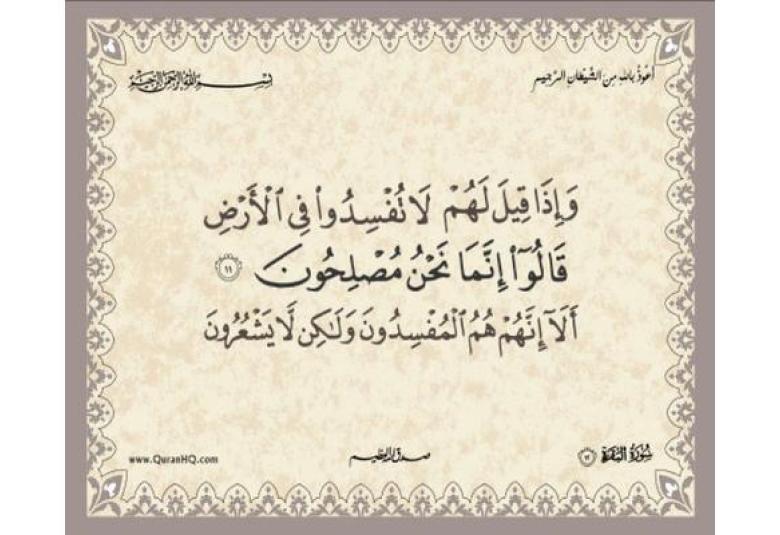 أعوذ بالله من الشيطان الرجيم
بسم الله الرحمن الرحيم
وَإِذَا قِيلَ لَهُمْ لَا تُفْسِدُوا۟ فِى ٱلْأَرْضِ
قَالُوٓا۟ إِنَّمَا نَحْنُ مُصْلِحُونَ ١١
أَلَآ إِنَّهُمْ هُمُ ٱلْمُفْسِدُونَ وَلَـٰكِن لَّا يَشْعُرُونَ
سورة البقرة ١٢
صدق الله العظيم
www.QuranHQ.com